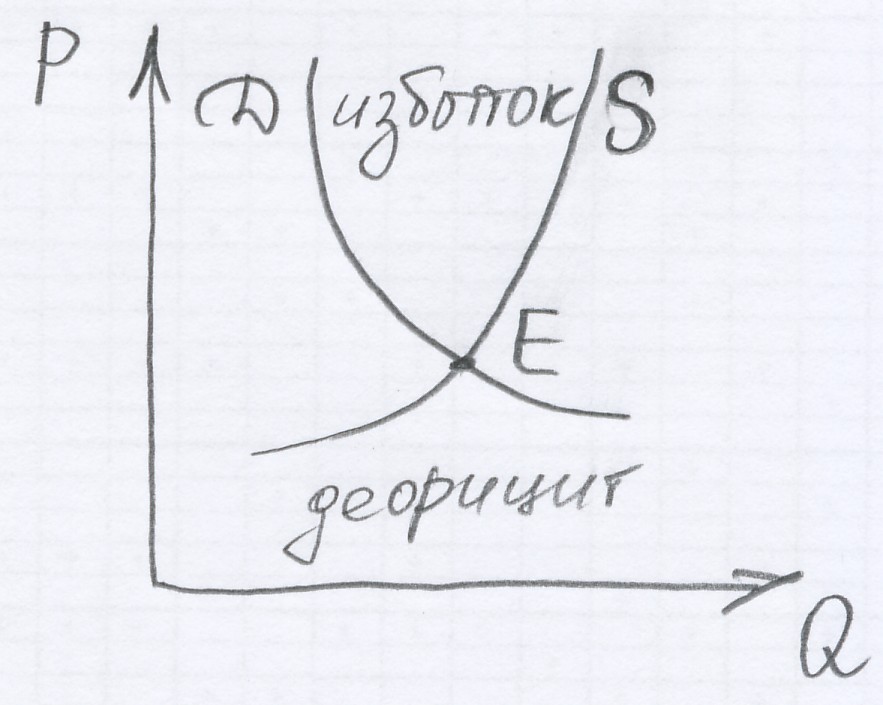 P
D избыток S
E
дефицит
Q